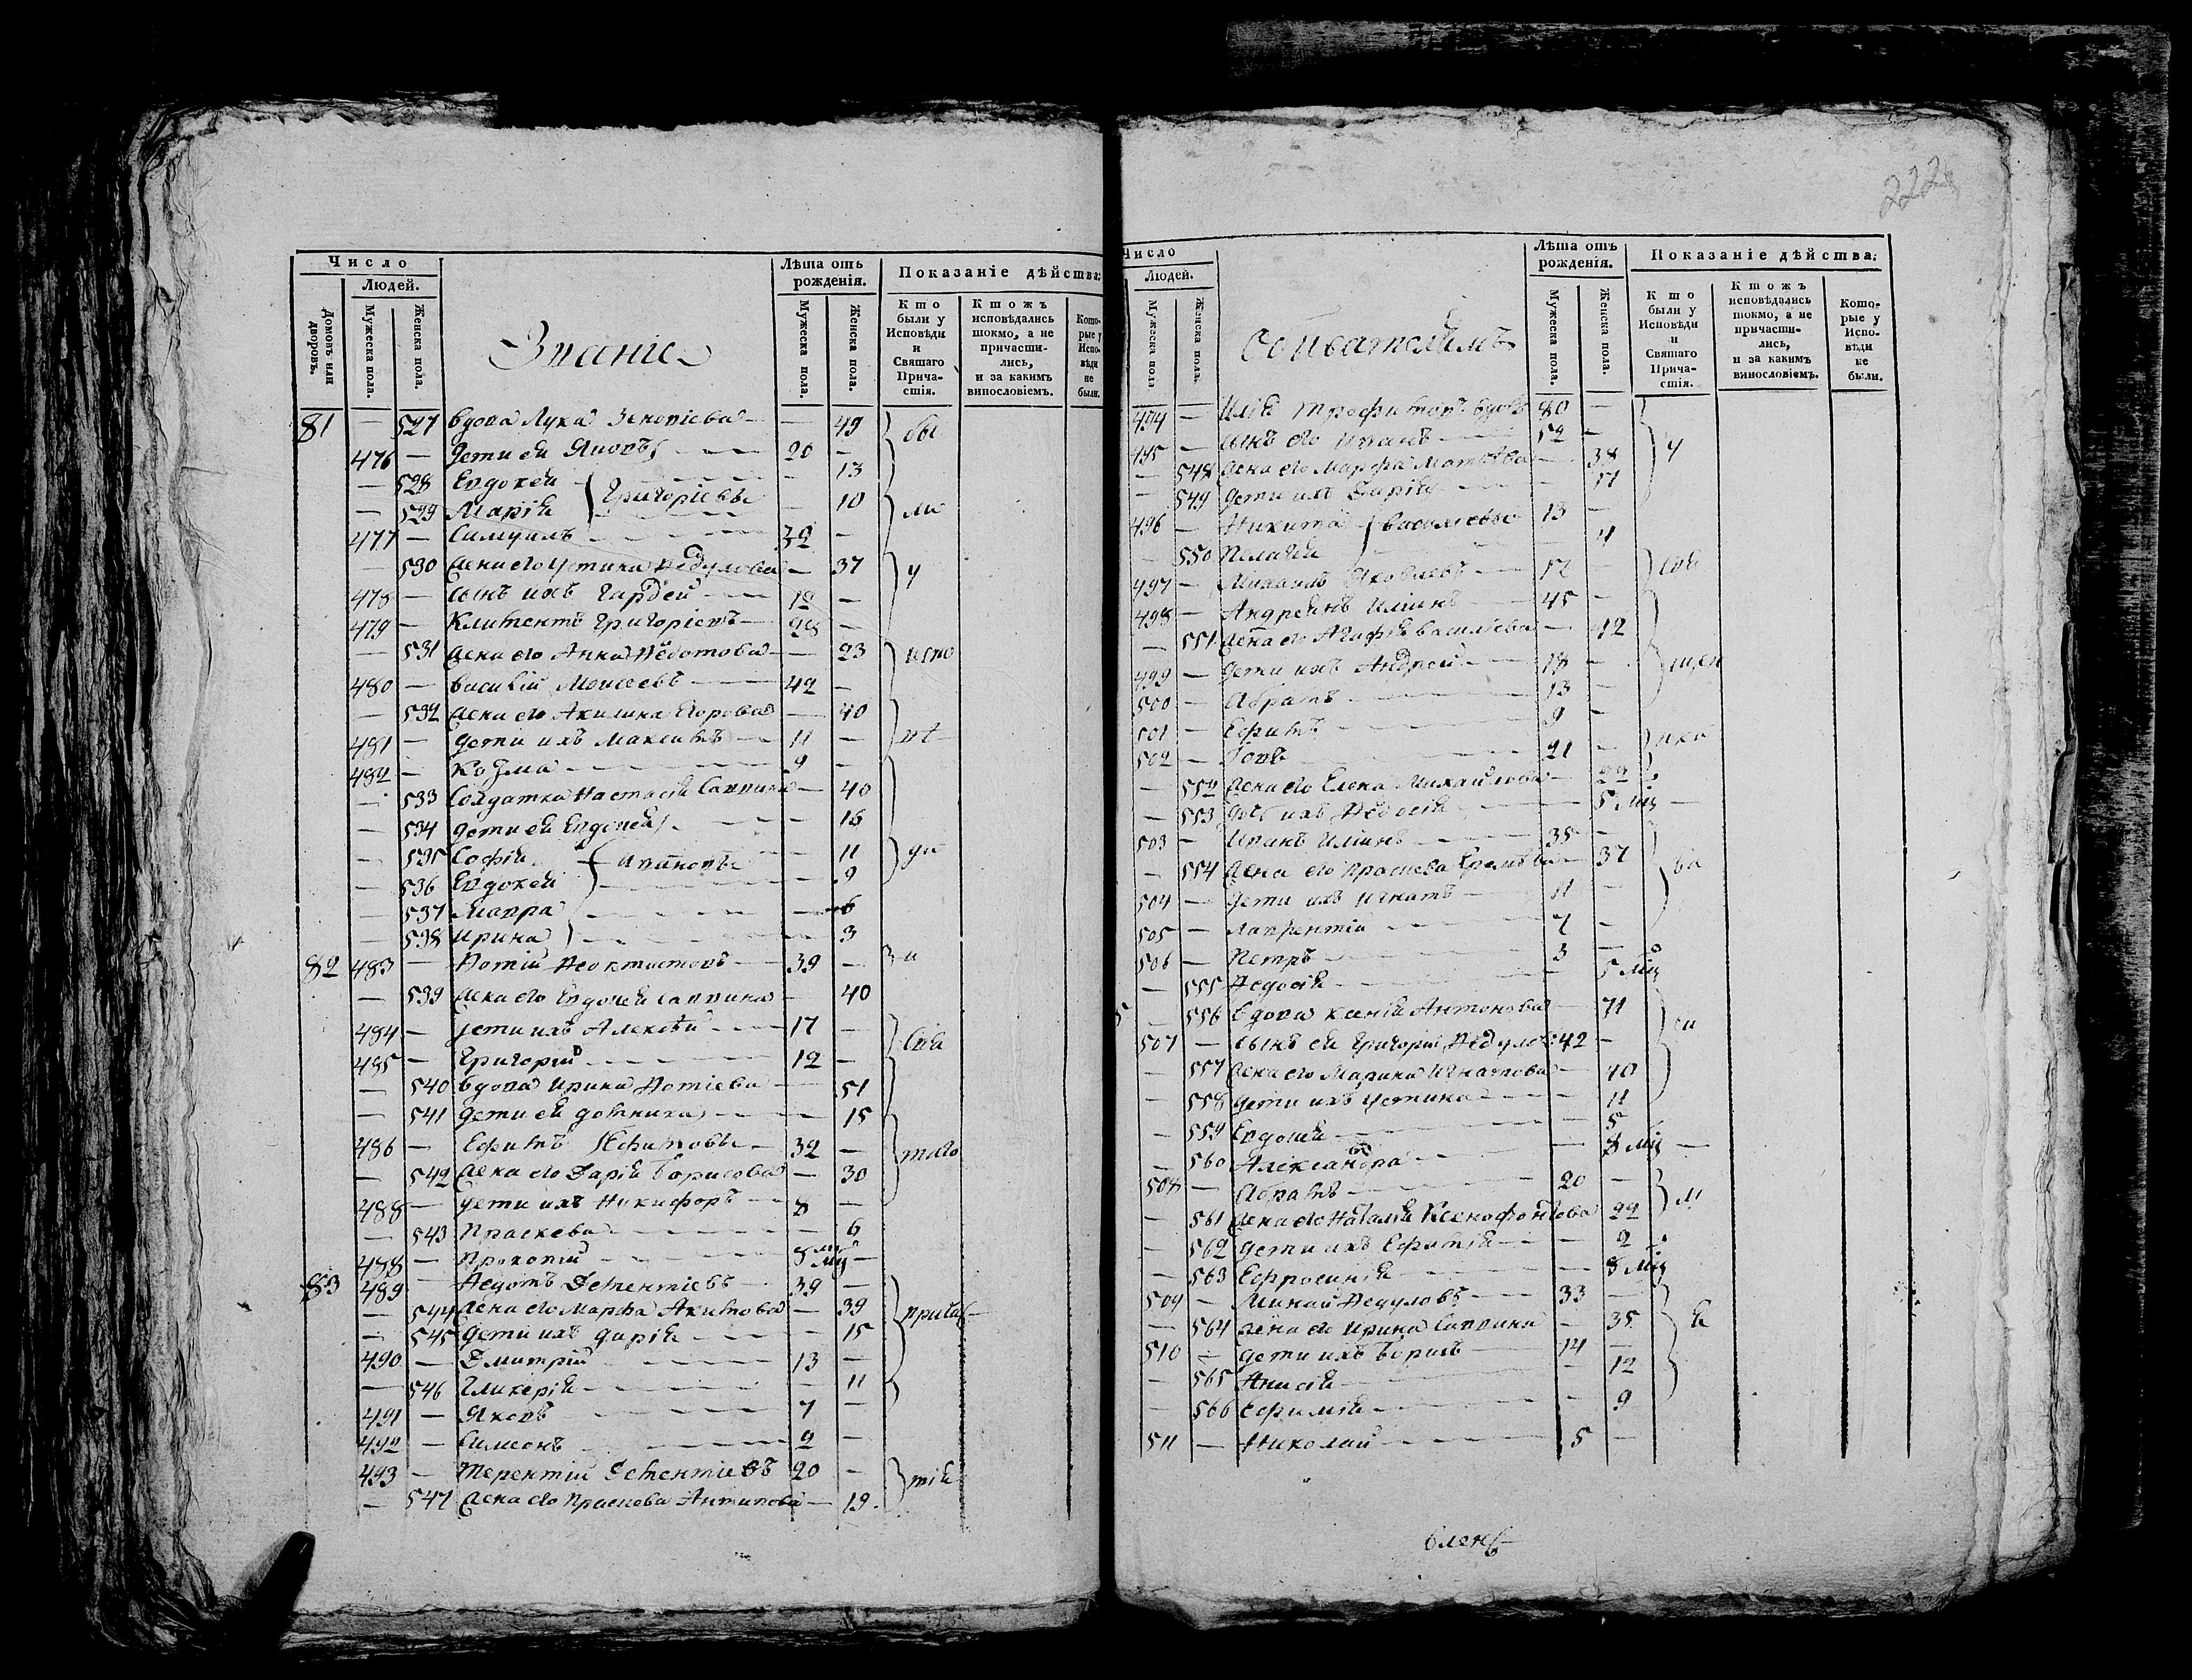 222
Число
Людей.
Домовъ или дворовъ.
Мужеска пола.
Женска пола.
Званіе
Лѣта отъ рожденія.
Мужеска пола.
Женска пола.
Показаніе дѣйства:
Кто были у Исповѣди и Святаго Причастія.
Ктожъ исповѣдались токмо, а не причастились, и за какимъ винословіемъ.
Которые у Исповѣди не были.
81 — 527 вдова Лукіа Зеновіева — 49
476 — дети ея Яковъ 20 —
— 528 Евдокея — 13
— 529 Марія Григорьевы — 10
477 — Самуилъ 32 —
— 530 жена его Устина Федулова — 37
478 — сынъ ихъ Гардей 12 —
479 — Климентъ Григоріевъ 28 —
— 531 жена его Анна Федотова — 23
480 — Василій Моисеевъ 42 —
— 532 жена его Акилина Егорова — 40
481 — дети ихъ Максимъ 11 —
482 — Козма 9 —
— 533 Солдатка Настасія Саввина — 40
— 534 дети ея Евдокея — 16
— 535 Софія Ивановы — 11
— 536 Евдокея — 9
— 537 Мавра — 6
— 538 Ирина — 3
82 483 — Фотій Феоктистовъ 39 —
— 539 жена его Евдокея Саввина — 40
484 — дети ихъ Алексѣй 17 —
485 — Григорій 12 —
— 540 вдова Ирина Фотіева — 51
— 541 дети ея Домника — 15
486 — Ефимъ Ефимовы 32 —
— 542 жена его Дарія Борисова — 30
488 — дети ихъ Никифоръ 8 —
— 543 Праскева — 6
488 — Прокопій 8 мц —
83 489 — Федотъ Дементіевъ 39 —
— 544 жена его Марфа Акимова — 39
— 545 дети ихъ Дарія — 15
490 — Дмитрій 13 —
— 546 Гликерія — 11
491 — Яковъ 7 —
492 — Симеонъ 2 —
493 — Терентій Дементіевъ 20 —
— 547 жена его Праскева Антипова — 19
Число
Людей.
Мужеска пола
Женска пола.
Обывателямъ
Лѣта отъ рожденія.
Мужеска пола.
Женска пола.
Показаніе дѣйства;
Кто были у Исповѣди и Святаго Причастія.
Ктожъ исповѣдались токмо, а не причастились, и за какимъ винословіемъ.
Которые у Исповѣди не были.
494 — Илія Трофимовъ вдовъ 80 —
495 — сынъ его Иванъ 52 —
— 548 жена его Марфа Матвѣева — 38
— 549 дети ихъ Дарія — 17
496 — Никита Василіевы 13 —
— 550 Пелагія — 4
497 — Михаилъ Яковлевъ 12 —
498 — Андреянъ Ильинъ 45 —
— 551 жена его Агафія Василіева — 42
499 — дети ихъ Андрей 18 —
500 — Абрамъ 13 —
501 — Ефимъ 9 —
502 — Іовъ 21 —
— 552 жена его Елена Михайлова — 22
— 553 дочь ихъ Феодосія — 5 мц
503 — Иванъ Ильинъ 35 —
— 554 жена его Праскева Еремѣева — 37
504 — дети ихъ Игнатъ 11 —
505 — Лаврентій 7 —
506 — Петръ 3 —
— 555 Федосія — 5 мц
— 556 вдова Ксенія Антонова — 71
507 — сынъ ея Григорій Федуловъ 42 —
— 557 жена его Марина Игнатова — 40
— 558 дети ихъ Устина — 11
— 559 Евдокея — 5
— 560 Александра — 8 мц
508 — Абрамъ 20 —
— 561 жена его Наталія Ксенофонтова 22
— 562 дети ихъ Ефимія — 2
— 563 Ефросинія — 8 мц
509 — Минай Федуловъ 33 —
— 564 жена его Ирина Саввина — 35
510 — дети ихъ Борисъ 14 —
— 565 Анисія — 12
— 566 Ефимія — 9
511 — Николай 5 —